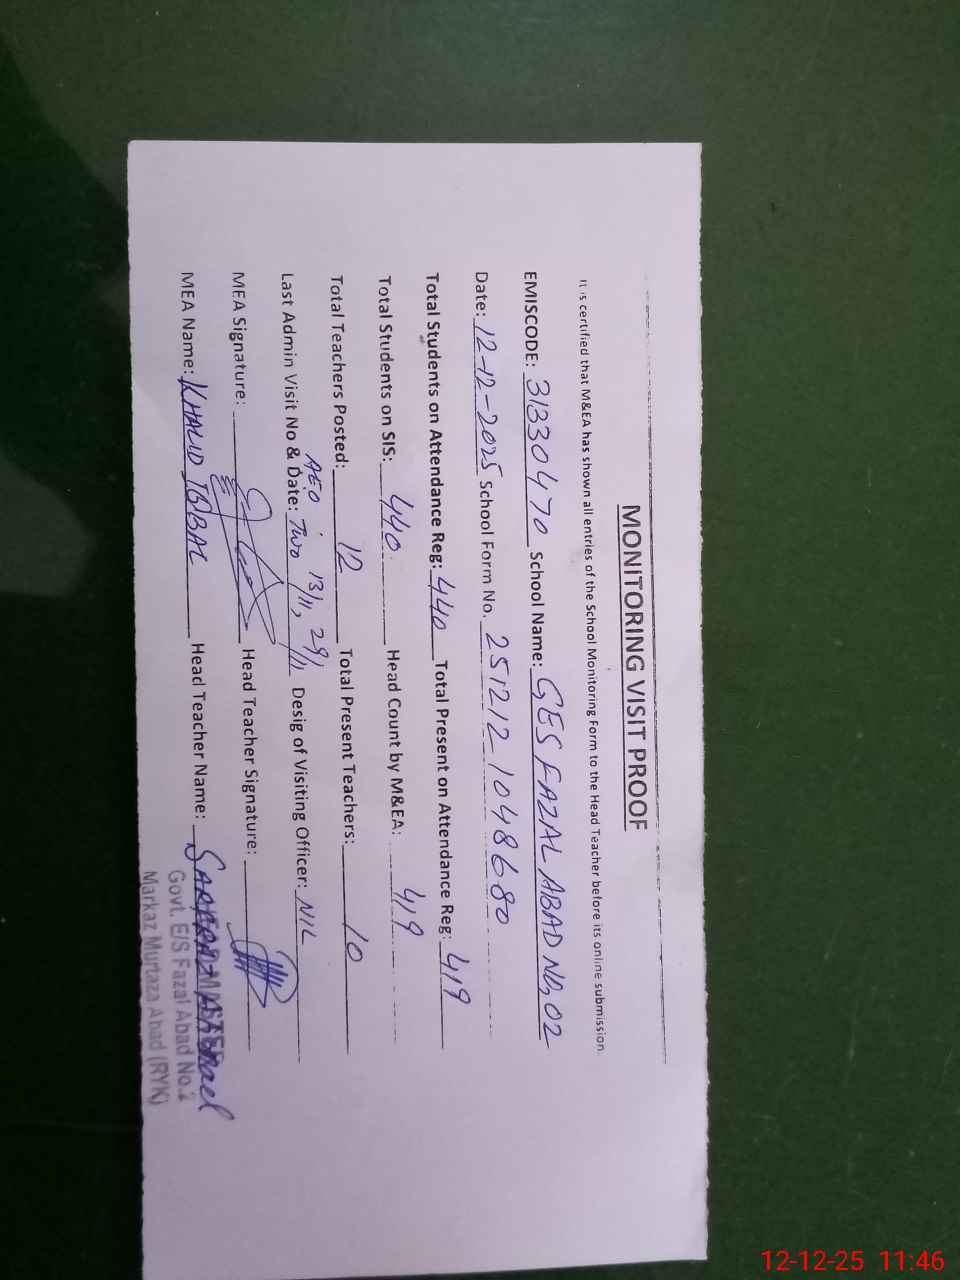 MONITORING VISIT PROOF
It is certified that M&EA has shown all entries of the School Monitoring Form to the Head Teacher before its online submission.
EMISCODE: 31330470 School Name: GES FAZAL ABAD NO. 02
Date: 12-12-2025 School Form No. 2512121048680
Total Students on Attendance Reg: 440 Total Present on Attendance Reg: 419
Total Students on SIS: 440 Head Count by M&EA: 419
Total Teachers Posted: 12 Total Present Teachers: 10
AEO : 13/11, 29/11
Last Admin Visit No & Date: Two Desig of Visiting Officer: NIL
MEA Signature: Head Teacher Signature:
MEA Name: KHALID IQBAL Head Teacher Name:
Govt. E/S Fazal Abad No.2
Markaz Murtaza Abad (RYK)
12-12-25 11:46